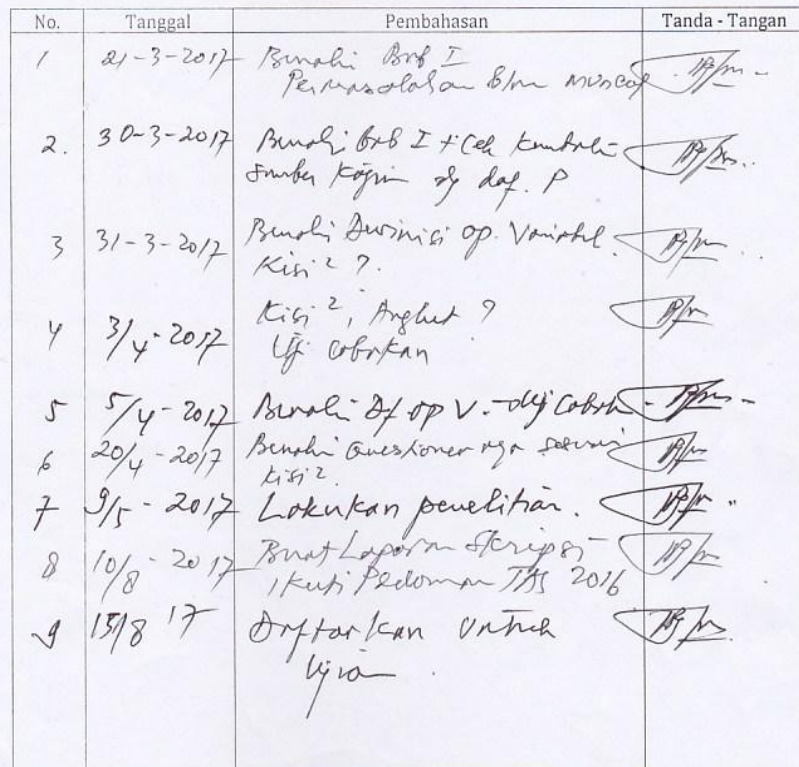 No. Tanggal Pembahasan Tanda - Tangan
1 21-3-2017 Benahi Bab I
Permasalahan blm muncul
2. 30-3-2017 Benahi bab I + Cek kembali
sumber kajian dg daf. P
3 31-3-2017 Benahi Devinisi op. Variabel.
Kisi2 ?.
4 3/4-2017 Kisi2, Angket ?
Uji cobakan
5 5/4-2017 Benahi Df op V. - diuji Coba
6 20/4-2017 Benahi Questioner nya sesuai
kisi2.
7 9/5-2017 Lakukan penelitian.
8 10/8-2017 Buat Laporan Skripsi
ikuti Pedoman TAS 2016
9 15/8 17 Daftarkan untuk
Ujian